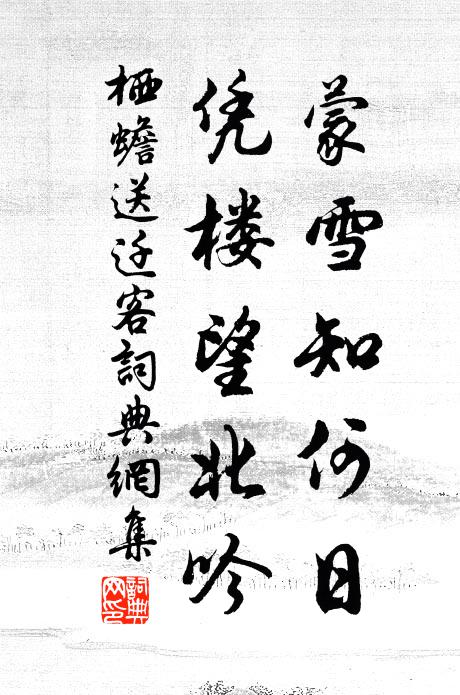 蒙雪知何日
凭楼望北吟
栖蟾送迁客詞典網集
詞典网印